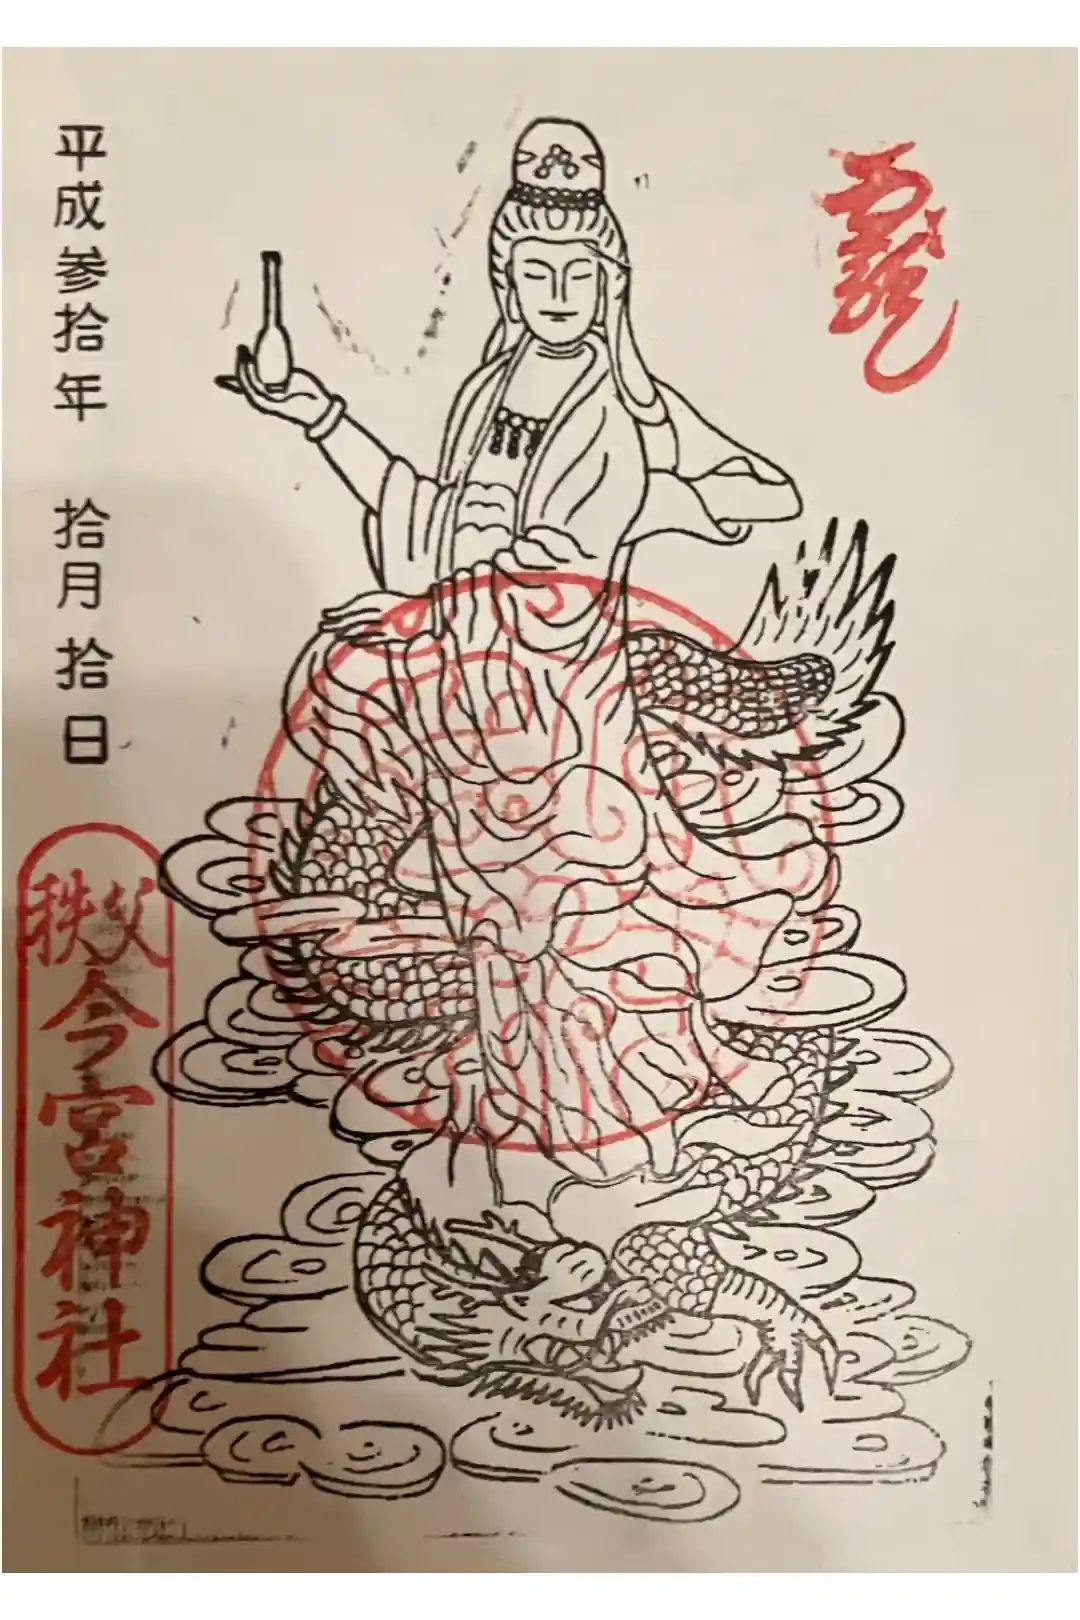 平成参拾年 拾月拾日
秩父今宮神社